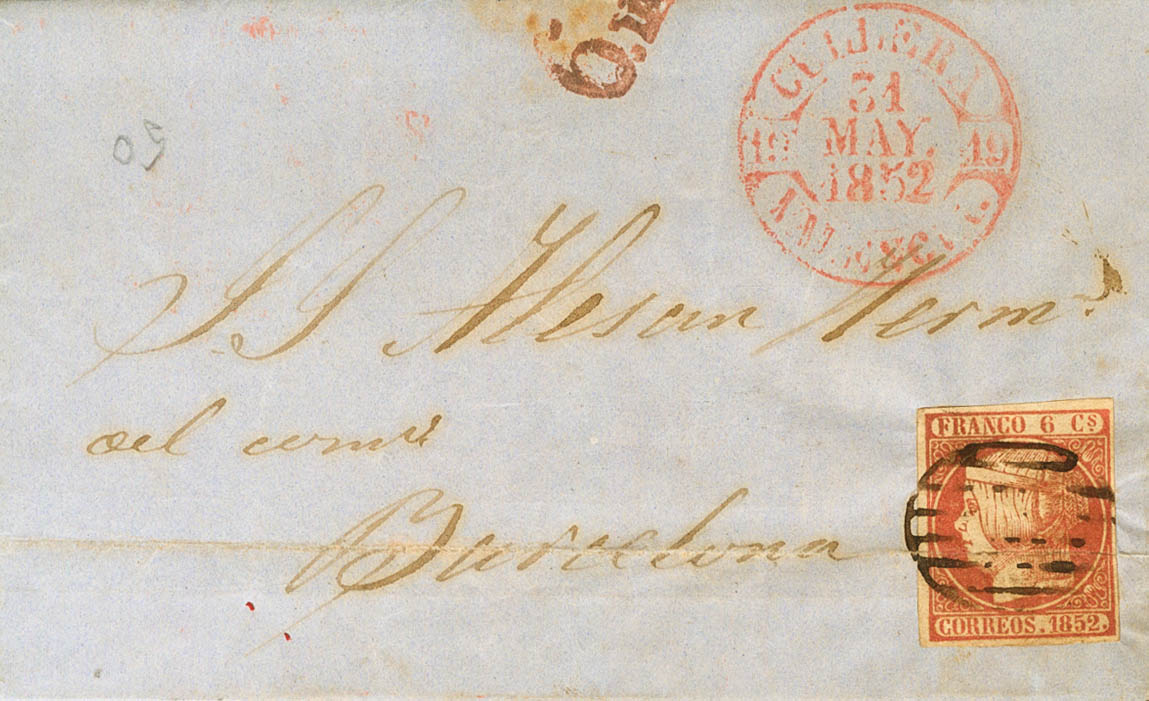 CULLERA
31
MAY.
1852
19 19
S.S. Alesan Herm.s
del comº
Barcelona
FRANCO 6 Cs
CORREOS. 1852.